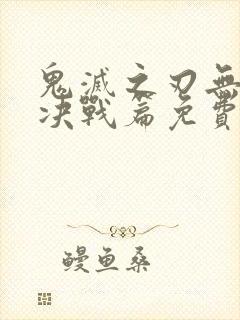 鬼滅之刃無
决戰篇免費
鳗鱼桑